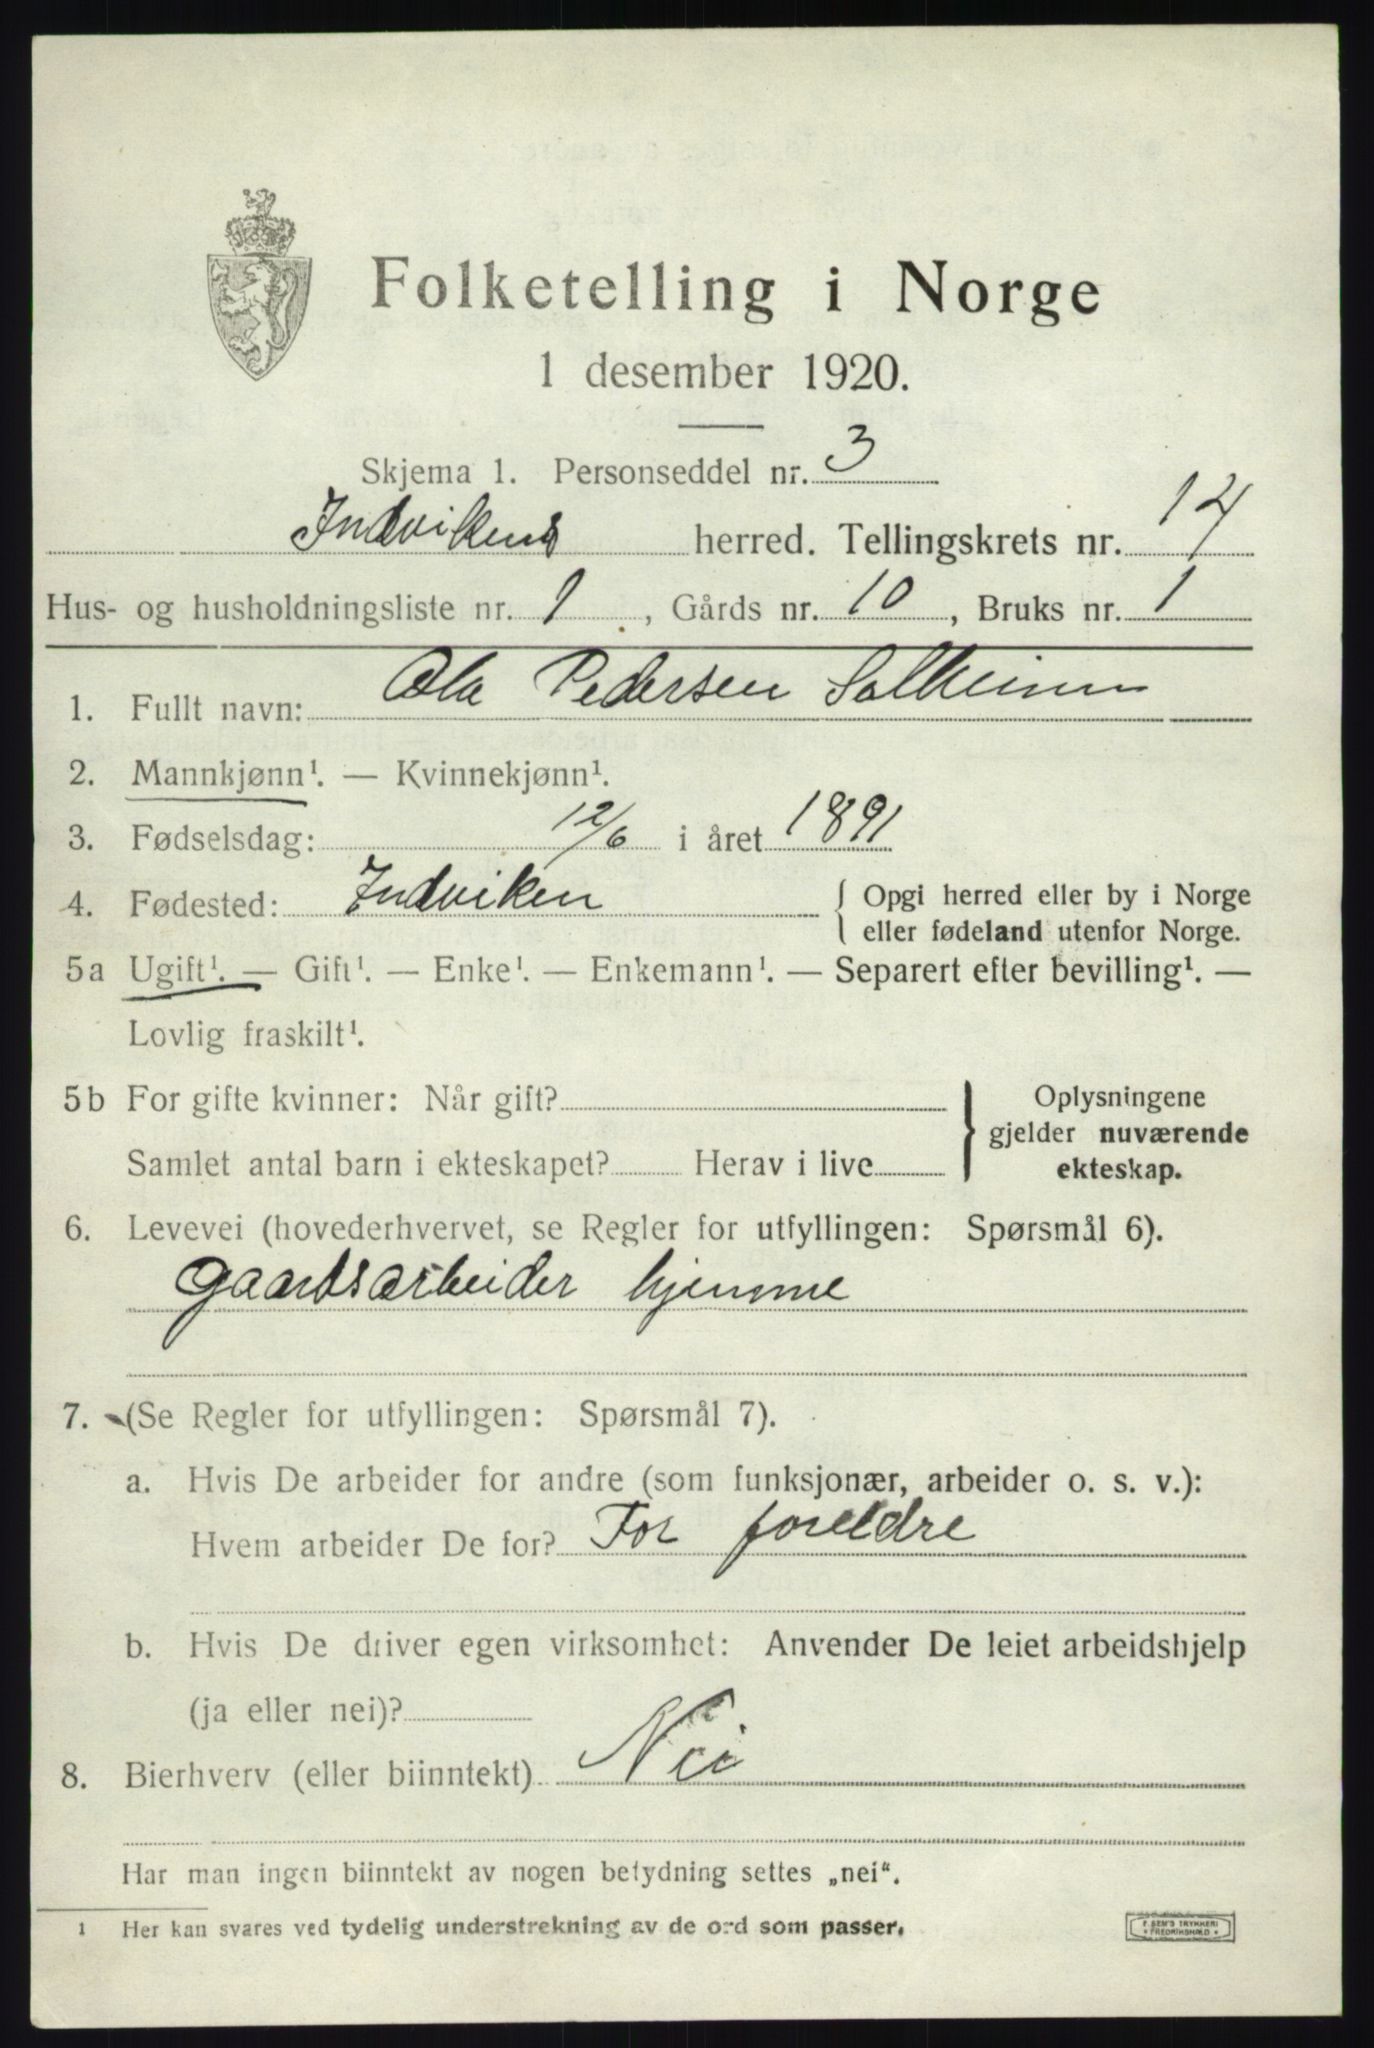 Folketelling i Norge
1 desember 1920.
Skjema 1. Personseddel nr. 3
Indvikens herred. Tellingskrets nr. 14
Hus- og husholdningsliste nr. 1, Gårds nr. 10, Bruks nr. 1
1. Fullt navn: Ola Pedersen Solheim
2. Mannkjønn¹. — Kvinnekjønn¹.
3. Fødselsdag: 12/6 i året 1891
4. Fødested: Indviken { Opgi herred eller by i Norge
eller fødeland utenfor Norge.
5a Ugift¹. — Gift¹. — Enke¹. — Enkemann¹. — Separert efter bevilling¹. —
Lovlig fraskilt¹.
5b For gifte kvinner: Når gift?
Samlet antal barn i ekteskapet? Herav i live
} Oplysningene
gjelder nuværende
ekteskap.
6. Levevei (hovederhvervet, se Regler for utfyllingen: Spørsmål 6).
gaardsarbeider hjemme
7. (Se Regler for utfyllingen: Spørsmål 7).
a. Hvis De arbeider for andre (som funksjonær, arbeider o. s. v.):
Hvem arbeider De for? For foreldre
b. Hvis De driver egen virksomhet: Anvender De leiet arbeidshjelp
(ja eller nei)?
8. Bierhverv (eller biinntekt) Nei
Har man ingen biinntekt av nogen betydning settes „nei“.
1 Her kan svares ved tydelig understrekning av de ord som passer.
F. SEM'S TRYKKERI
* FREDRIKSHALD *